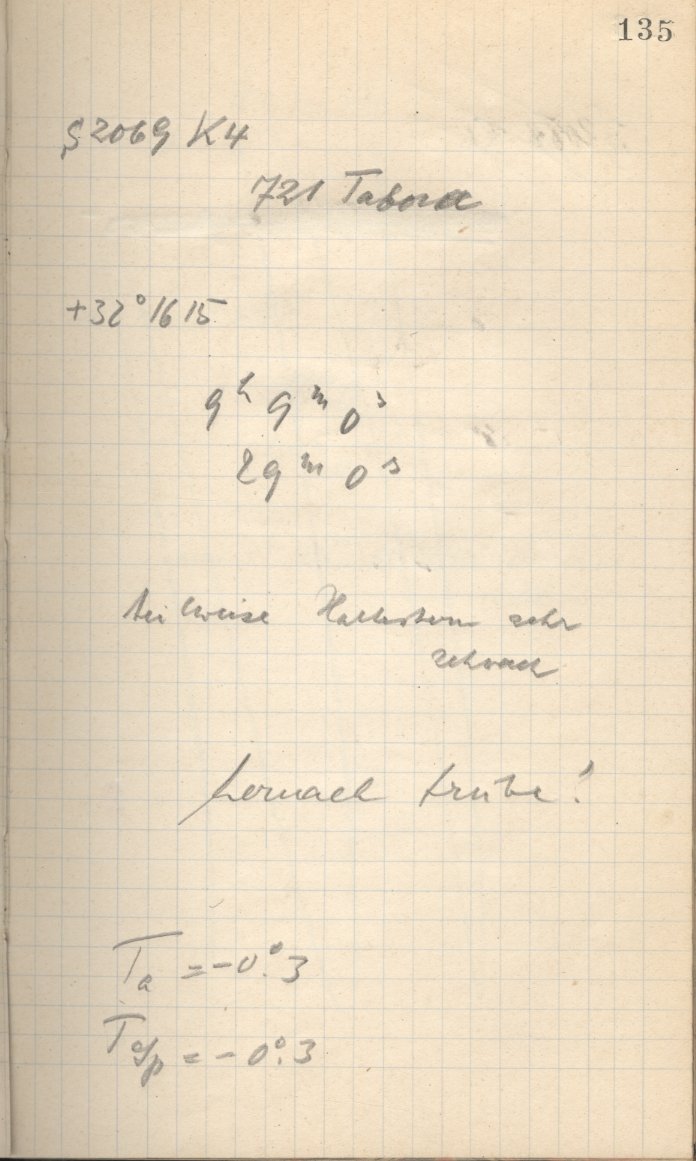 135
S 2069 K4
721 Tabora
+32° 1615
9ʰ 9ᵐ 0ˢ
29ᵐ 0ˢ
teilweise Haltestern sehr
schwach
hernach trübe!
Ta = -0°.3
T = -0°.3